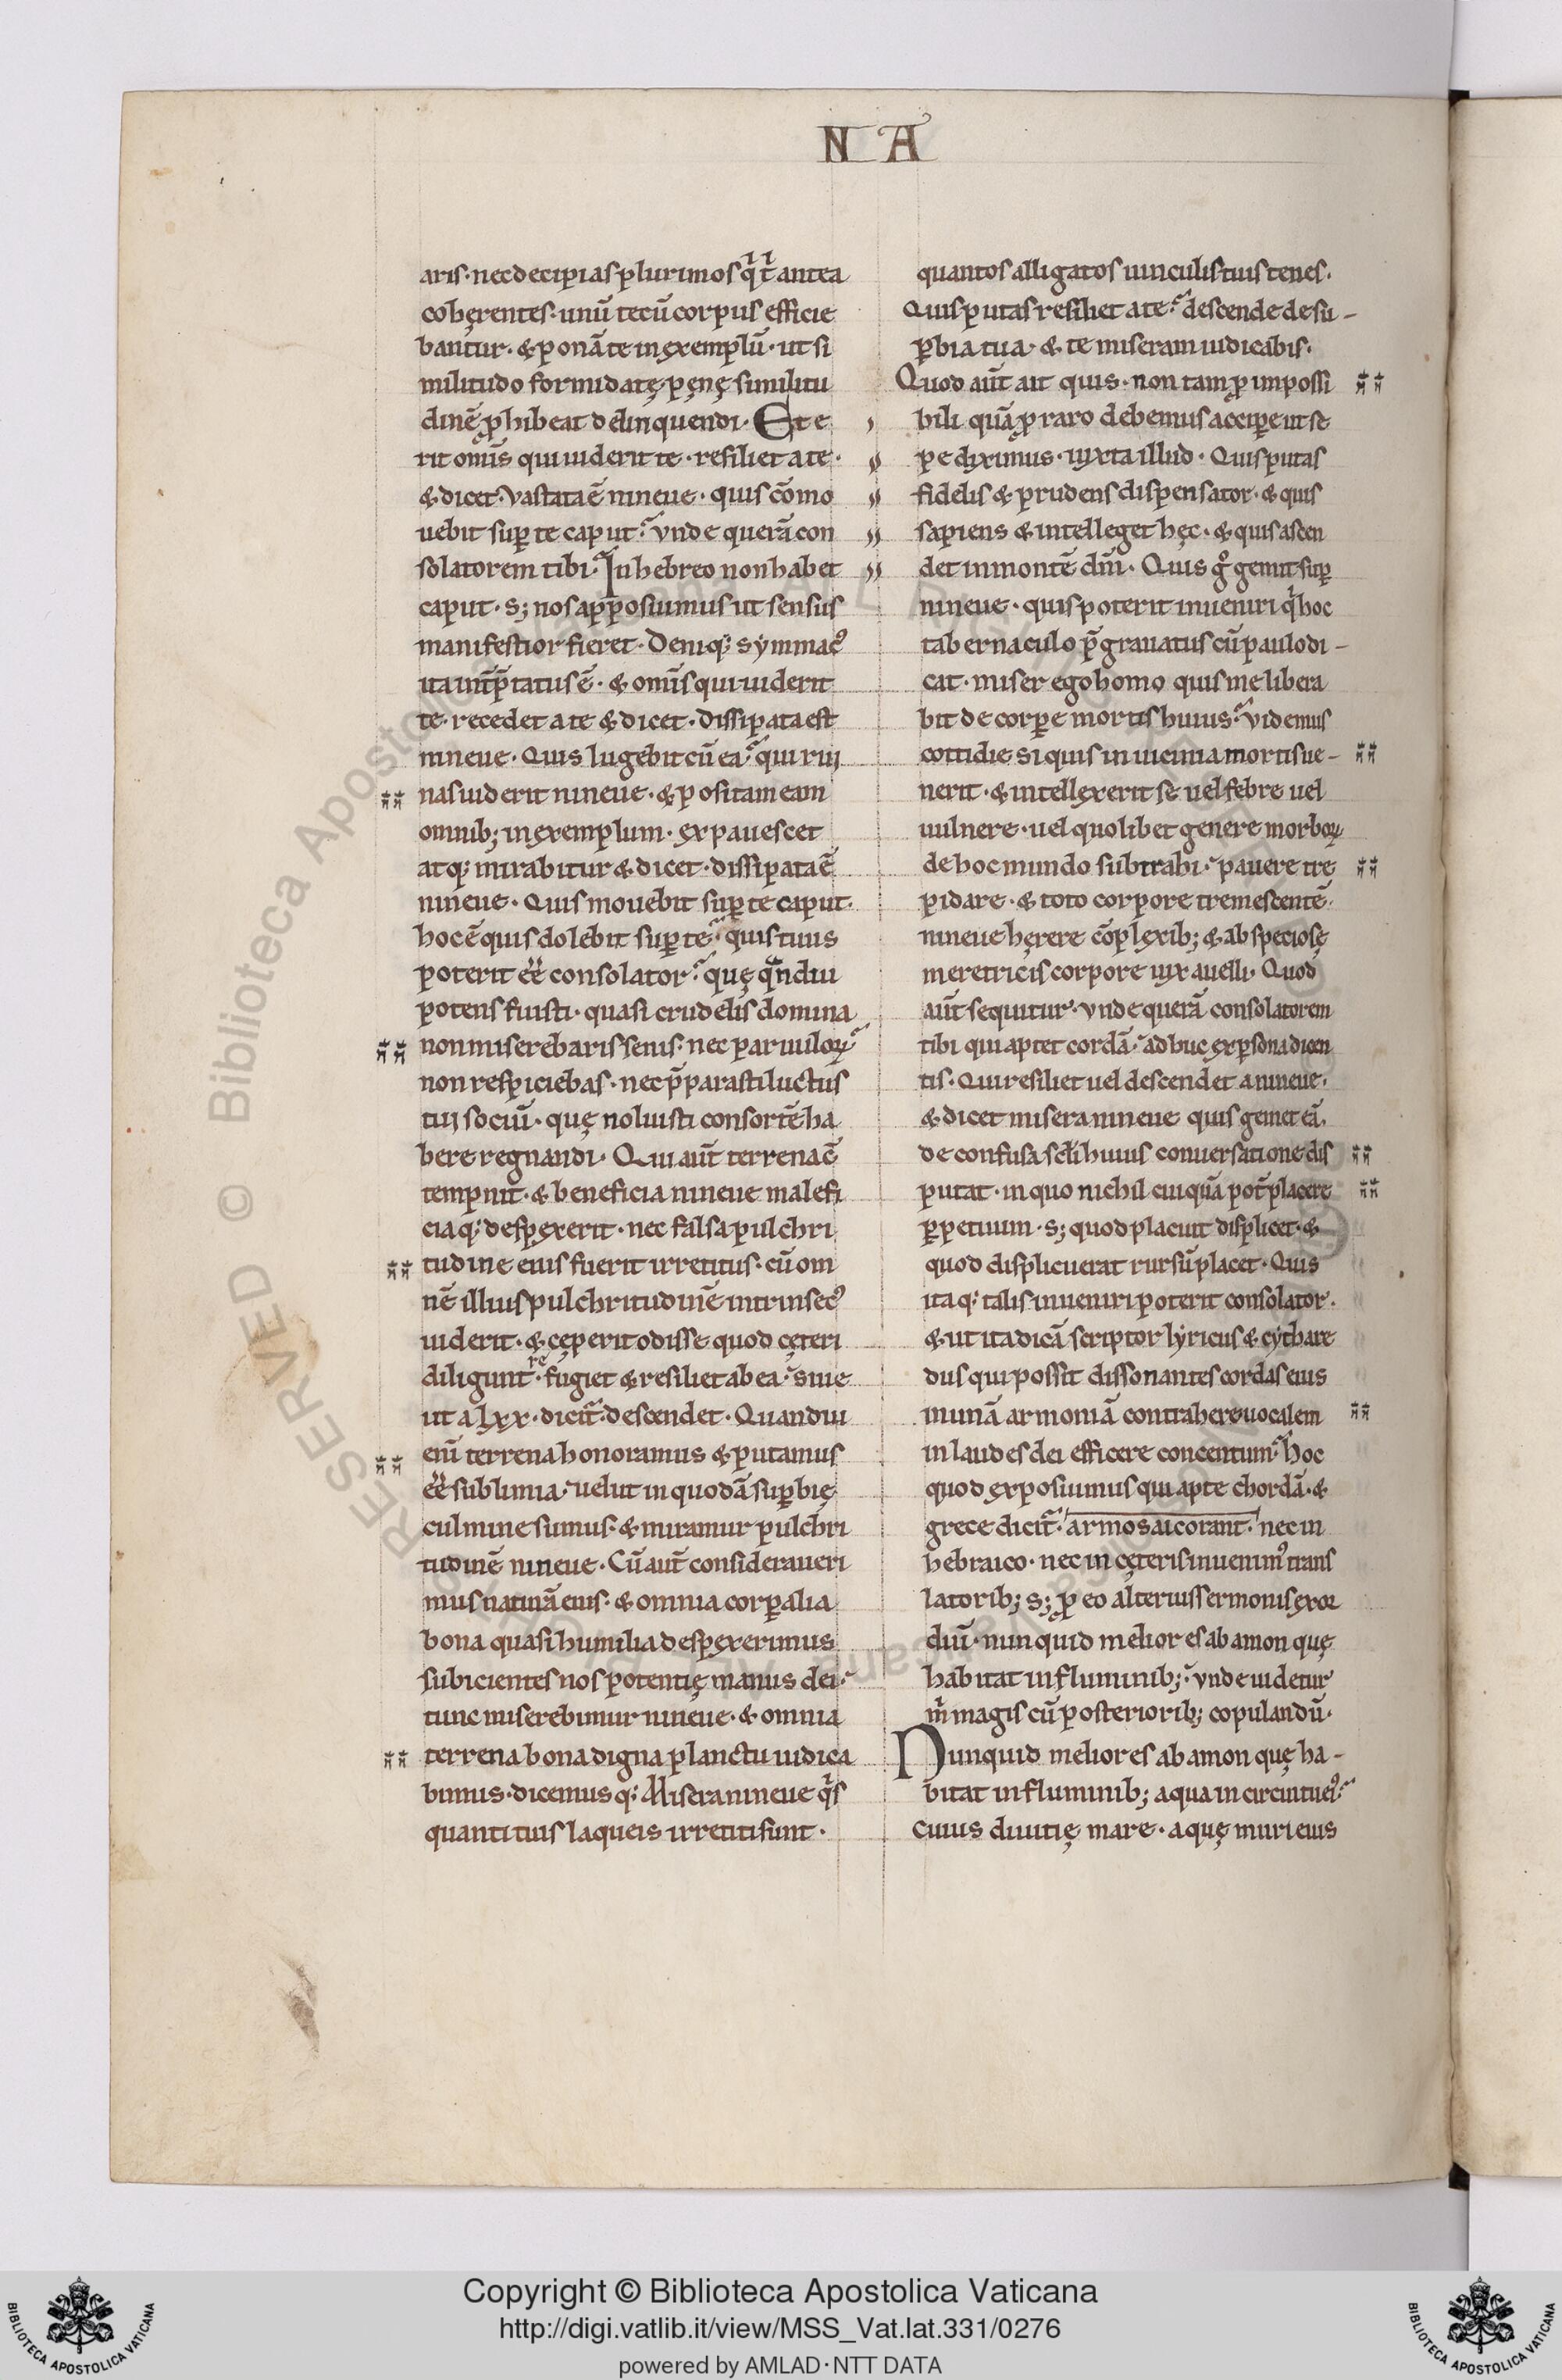 N A
aris· nec decipias plurimos q̄ ti antea
cohęrentes· unū tecū corpus efficie
bantur· & ponā te in exemplū· ut si
militudo formidatę pęnę similitu
dinē ꝓhibeat delinquendi· Et e
rit omīs qui uiderit te· resiliet a te·
& dicet· Vastata ē nineue· quis cōmo
uebit suꝑ te caput? Vnde querā con
solatorem tibi· In hebreo non habet
caput· s; nos apposiuimus ut sensus
manifestior fieret· Deniq; symmacꝰ
ita int̄p̄tatus ē· & omīs qui uiderit
te· recedet a te & dicet· Dissipata est
nineue· Quis lugebit cū ea? qui rui
nas uiderit nineue· & positam eam
omnib; in exemplum· expauescet
atq; mirabitur & dicet· dissipata ē
nineue· Quis mouebit suꝑ te caput·
hoc ē quis dolebit suꝑ te? quis tuus
poterit ēē consolator? quę qᵃndiu
potens fuisti· quasi crudelis domina
non miserebaris senis· nec paruuloꝝ
non respiciebas· nec p̄parasti luctus
tui sociū· quę noluisti consortē ha
bere regnandi· Qui aūt terrena cō
tempnit· & beneficia nineue malefi
ciaq; despexerit· nec falsa pulchri
tudine eius fuerit irretitus· cū om
nē illius pulchritudinē intrinsecꝰ
uiderit· & cęperit odisse quod cęteri
diligunt· refugiet & resiliet ab ea· siue
ut a lxx· dicit̄· descendet· Quandiu
enī terrena honoramus & putamus
ēē sublimia· uelut in quodā suꝑbię
culmine sumus· & miramur pulchri
tudinē nineue· Cū aūt consideraueri
mus naturā eius· & omnia corꝑalia
bona quasi humilia despexerimus
subicientes nos potentię manus dei·
tunc miserebimur nineue· & omnia
terrena bona digna planctu iudica
bimus· dicemusq; Misera nineue
quanti tuis laqueis irretiti sunt·
quantos alligatos uinculis tuis tenes·
Quis putas resiliet a te? descende de su-
ꝑbia tua· & te miseram iudicabis·
Quod aūt ait quis· non tam ꝓ impossi
bili quā ꝓ raro debemus acciꝑe ut se
pe diximus· iuxta illud· Quis putas
fidelis & prudens dispensator· & quis
sapiens & intelleget hęc· & quis ascen
det in montē dn̄i· Quis gͦ gemit suꝑ
nineue· quis poterit inueniri q̇ hoc
tabernaculo p̄grauatus cū paulo di-
cat· miser ego homo quis me libera
bit de corꝑe mortis huius? Videmus
cottidie si quis in uicinia mortis ue-
nerit· & intellexerit se uel febre uel
uulnere· uel quolibet genere morboꝝ
de hoc mundo subtrahi· pauere tre
pidare· & toto corpore tremescentē·
nineue hęrere cōplexib; & ab speciosę
meretricis corpore uix auelli· Quod
aūt sequitur· Vnde querā consolatorem
tibi qui aptet cordā· adhuc ex ꝑsona dicen
tis· Qui resiliet uel descendet a nineue·
& dicet misera nineue quis gemet eā·
de confusa sclī huius conuersatione dis
putat· in quo nichil cuiquā pot̄ placere
ꝑpetuum· s; quod placuit displicet· &
quod displicuerat rursū placet· Quis
itaq; talis inueniri poterit consolator·
& ut ita dicā scriptor lyricus & cythare
dus qui possit dissonantes cordas eius
in unā armoniā contrahere uocalem
in laudes dei efficere concentum? hoc
quod exposuimus qui apte chordā· &
grece dicit̄· armosai corant· nec in
hebraico· nec in cęteris inuenimꝰ trans
latorib; s; ꝓ eo alterius sermonis exor
diū· nunquid melior es ab amon quę
habitat in fluminib;? Vnde uidetur
m̄ magis cū posteriorib; copulandū·
Nunquid melior es ab amon quę ha-
bitat in fluminib; aqua in circuitu eiꝰ?
Cuius diuitię mare· aquę muri eius
Copyright © Biblioteca Apostolica Vaticana
http://digi.vatlib.it/view/MSS_Vat.lat.331/0276
powered by AMLAD·NTT DATA